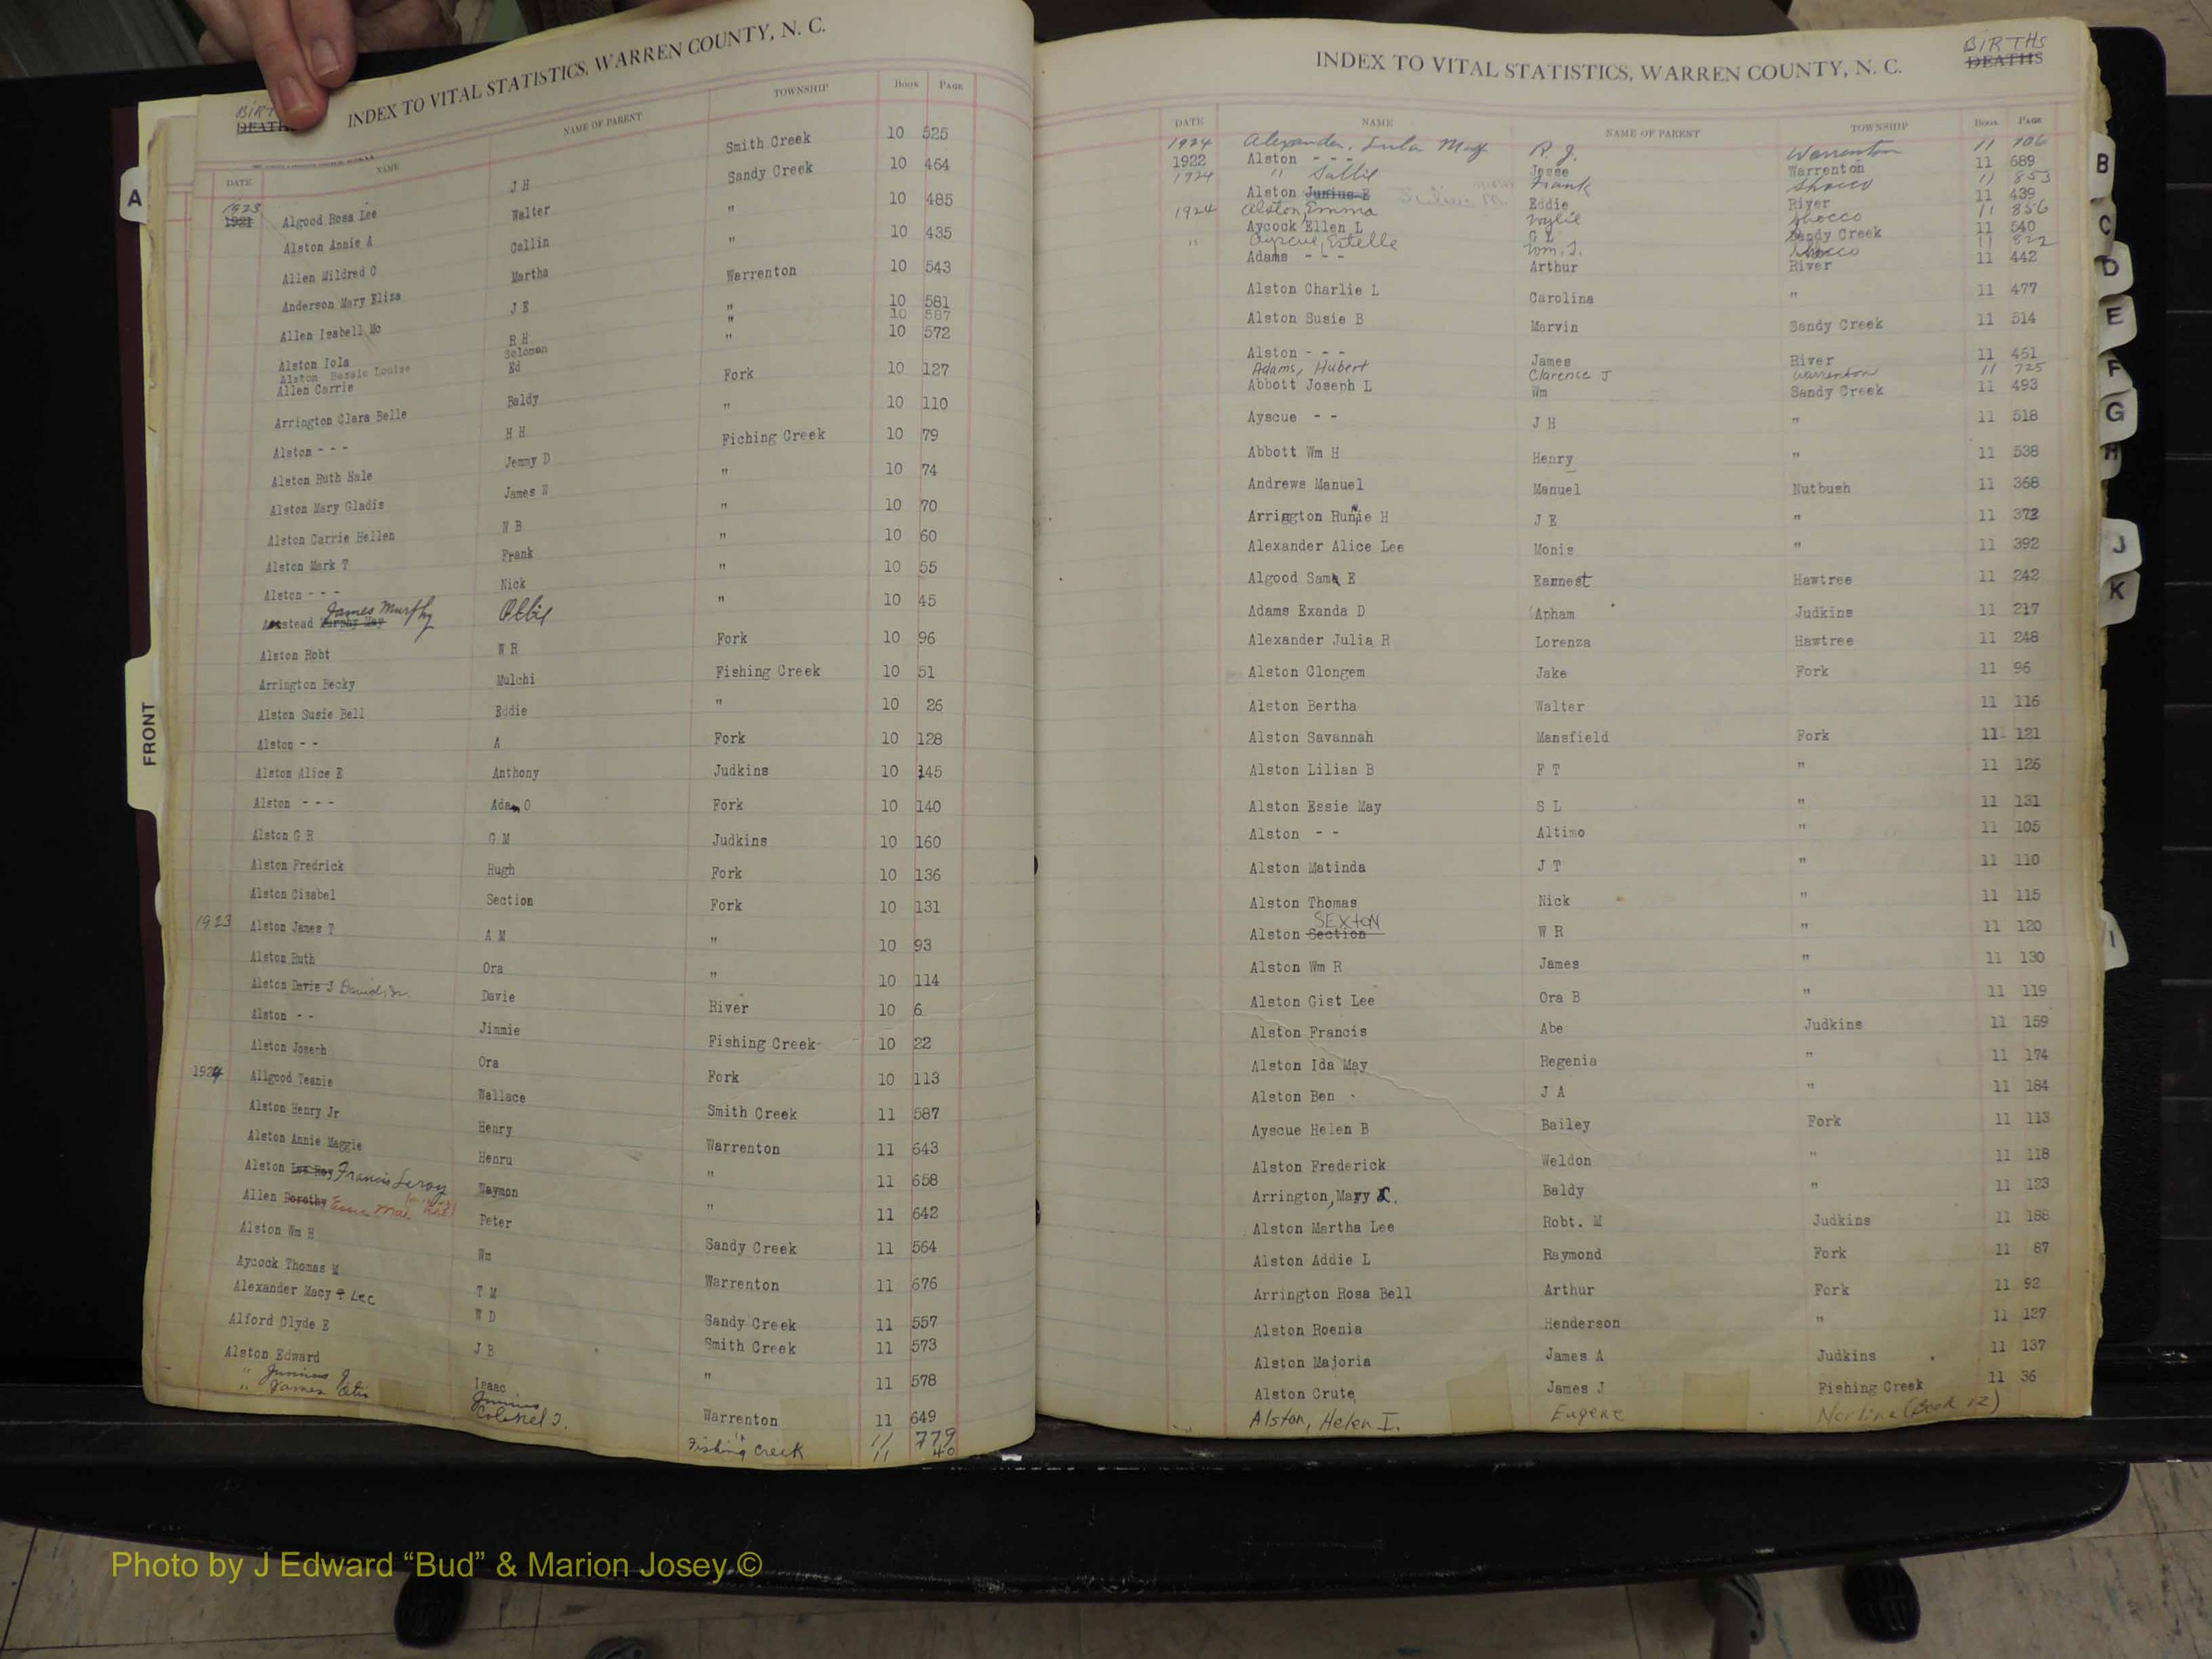 INDEX TO VITAL STATISTICS, WARREN COUNTY, N. C.
DATE NAME NAME OF PARENT TOWNSHIP BOOK PAGE
1923 1921 Algood Rosa Lee J H Smith Creek 10 525
Alston Annie A Walter Sandy Creek 10 464
Allen Mildred C Collin " 10 485
Anderson Mary Eliza Martha " 10 435
Allen Isabell Mc J E Warrenton 10 543
Alston Iola R H " 10 581
Alston Bessie Louise Solomon " 10 587
Allen Carrie Ed " 10 572
Arrington Clara Belle Baldy Fork 10 127
Alston - - - H H " 10 110
Alston Ruth Hale Jemmy D Fiching Creek 10 79
Alston Mary Gladis James W " 10 74
Alston Carrie Hellen W B " 10 70
Alston Mark T Frank " 10 60
Alston - - - Nick " 10 55
stead Murphy May James Murphy Ollie " 10 45
Alston Robt W R Fork 10 96
Arrington Becky Mulchi Fishing Creek 10 51
Alston Susie Bell Eddie " 10 26
Alston - - A Fork 10 128
Alston Alice E Anthony Judkins 10 145
Alston - - - Adam O Fork 10 140
Alston G R G M Judkins 10 160
Alston Fredrick Hugh Fork 10 136
Alston Cizabel Section Fork 10 131
1923 Alston James T A M " 10 93
Alston Ruth Ora " 10 114
Alston Davie J David Jr. Davie River 10 6
Alston - - Jimmie Fishing Creek 10 22
Alston Joseph Ora Fork 10 113
1924 Allgood Teanie Wallace Smith Creek 11 587
Alston Henry Jr Henry Warrenton 11 643
Alston Annie Maggie Henru " 11 658
Alston Lee Roy Francis Leroy Waymon " 11 642
Allen Dorothy Essie Mae Peter Sandy Creek 11 564
Alston Wm H Wm Warrenton 11 676
Aycock Thomas M T M Sandy Creek 11 557
Alexander Macy Lee W D Smith Creek 11 573
Alford Clyde E J B " 11 578
Alston Edward Isaac Warrenton 11 649
" Junious J Junious " 11 779
" James Otis Colonel J. Fishing Creek 11 40
BIRTHS
DEATHS
INDEX TO VITAL STATISTICS, WARREN COUNTY, N. C.
DATE NAME NAME OF PARENT TOWNSHIP BOOK PAGE
1924 Alexander, Lula May R. J. Warrenton 11 706
1922 Alston - - - Jesse Warrenton 11 689
1924 " Sallie Frank Shocco 11 853
Alston Junius E Eddie River 11 439
1924 Alston, Emma Wylie Shocco 11 856
Aycock Ellen L G L Sandy Creek 11 540
" Ayscue, Estelle Wm. J. Shocco 11 822
Adams - - - Arthur River 11 442
Alston Charlie L Carolina " 11 477
Alston Susie B Marvin Sandy Creek 11 514
Alston - - - James River 11 461
Adams, Hubert Clarence J Warrenton 11 725
Abbott Joseph L Wm Sandy Creek 11 493
Ayscue - - J H " 11 518
Abbott Wm H Henry " 11 538
Andrews Manuel Manuel Nutbush 11 368
Arrington Runnie H J E " 11 372
Alexander Alice Lee Monis " 11 392
Algood Sam E Earnest Hawtree 11 242
Adams Exanda D Apham Judkins 11 217
Alexander Julia R Lorenza Hawtree 11 248
Alston Clongem Jake Fork 11 96
Alston Bertha Walter 11 116
Alston Savannah Mansfield Fork 11 121
Alston Lilian B F T " 11 126
Alston Essie May S L " 11 131
Alston - - Altimo " 11 105
Alston Matinda J T " 11 110
Alston Thomas Nick " 11 115
Alston Section SEXTON W R " 11 120
Alston Wm R James " 11 130
Alston Gist Lee Ora B " 11 119
Alston Francis Abe Judkins 11 159
Alston Ida May Regenia " 11 174
Alston Ben J A " 11 184
Ayscue Helen B Bailey Fork 11 113
Alston Frederick Weldon " 11 118
Arrington, Mary Baldy " 11 123
Alston Martha Lee Robt. M Judkins 11 188
Alston Addie L Raymond Fork 11 87
Arrington Rosa Bell Arthur Fork 11 92
Alston Roenia Henderson " 11 127
Alston Majoria James A Judkins 11 137
Alston Crute James J Fishing Creek 11 36
Alston, Helen I. Eugene Norlina (Book 12)
BIRTHS
DEATHS
A
FRONT
B
C
D
E
F
G
H
J
K
I
Photo by J Edward “Bud” & Marion Josey ©